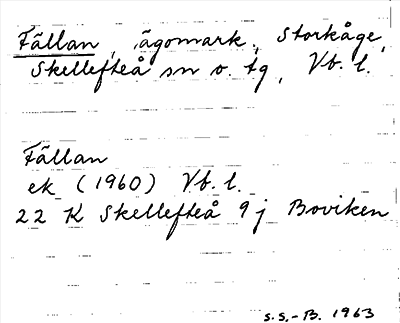 Fällan, ägomark, Storkåge,
Skellefteå sn o. tg, Vb. l.
Fällan
ek (1960) Vb. l.
22 K Skellefteå 9 j Boviken
S.S.-B. 1963